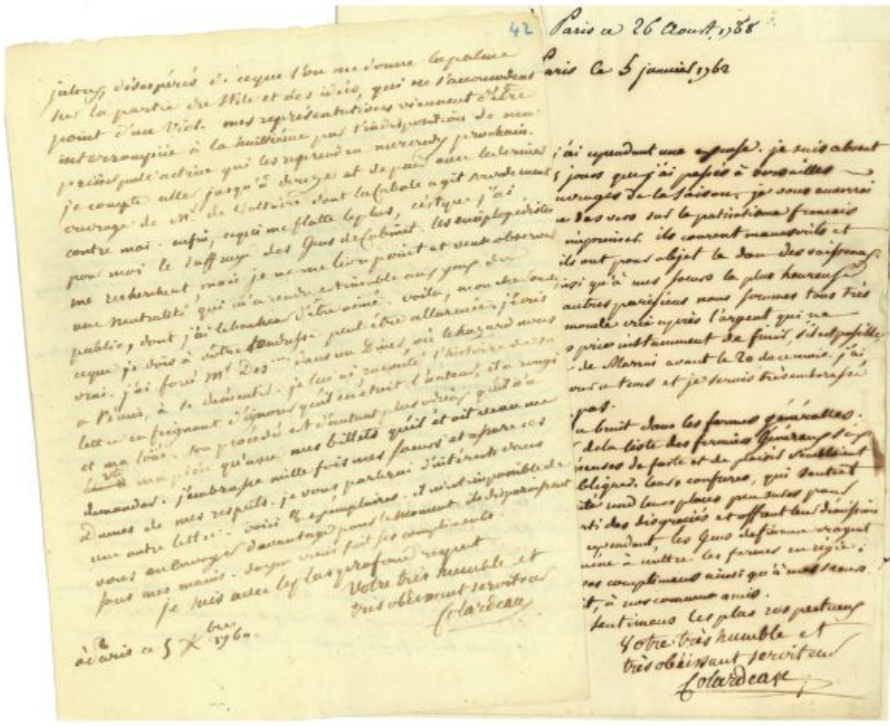 42
jaloux, désespérés de ce que l'on me donne la palme
sur la partie du stile et des idées, qui ne s'accomodent
point d'une Viol. mes représentations viennent d'être
interrompüe à la huittième par l'indisposition de ma
principale actrice qui les reprendra mercredy prochain.
je compte aller jusqu'à douze et de pair avec le dernier
ouvrage de Mr. de Voltaire dont la Cabale agit sourdement
contre moi. enfin, ce qui me flatte le plus, c'est que j'ai
pour moi le suffrage des Gens de Cabinet. les enciclopedistes
me recherchent mais je ne me livre point et veut observer
une neutralité, qui m'a rendu estimable aux yeux du
public, dont j'ai le bonheur d'être aimé. voilà, mon cher oncle
ce que je dois à votre tendresse peut être allarmée. j'écris
vrai. j'ai forcé Mr. Des dans un Diner, où le hazard nous
a réunis, à se démentir. je lui ai raconté l'histoire de sa
lettre en feignant d'ignorer qu'il en étoit l'auteur, il a rougi
et m'a loüé. son procédé est d'autant plus odieux qu'il n'a
vu ma pièce qu'avec mes billets qu'il étoit venu me
demander. j'embrasse mille fois mes soeurs et assure ces
Dames de mes respects. je vous parlerai d'intérêts dans
une autre lettre. voici 3 exemplaires. il m'est impossible de
vous en envoyer d'avantage pour le moment. ils disparoissent
sous mes mains. vous fait ses compliments
je suis avec le plus profond respect
Votre très humble et
très obéissant serviteur
Colardeau
à Paris ce 5 Xbre 1760.
Paris ce 26 Aoust 1768
aris Ce 5 janvier 1762
j'ai cependant une excuse. je suis absent
jours que j'ai passés à versailles
ouvrages de la saison, je vous enverrai
des vers sur le patriotisme francais
imprimés. ils courent manuscrits et
ils ont pour objet le don des vaisseaux.
ainsi qu'à mes soeurs la plus heureuse
autres parisiens nous sommes tous très
monde crie après l'argent qui ne
prie instamment de finir, s'il est possible
de Marrai avant le 20 de ce mois. j'ai
tems et je serois très embarassé
pas.
bruit dans les fermes générales.
de la liste des fermiers Généraux
de faste et de plaisir sembloient
confreres, qui sentent
leurs places peu sures pour
des disgraciés et offrent leur démission
cependant les Gens de finance craignent
à mettre les fermes en régie.
complimens ainsi qu'à mes soeurs
à nos communs amis.
sentimens les plus respectueux
Votre très humble et
très obéissant serviteur
Colardeau